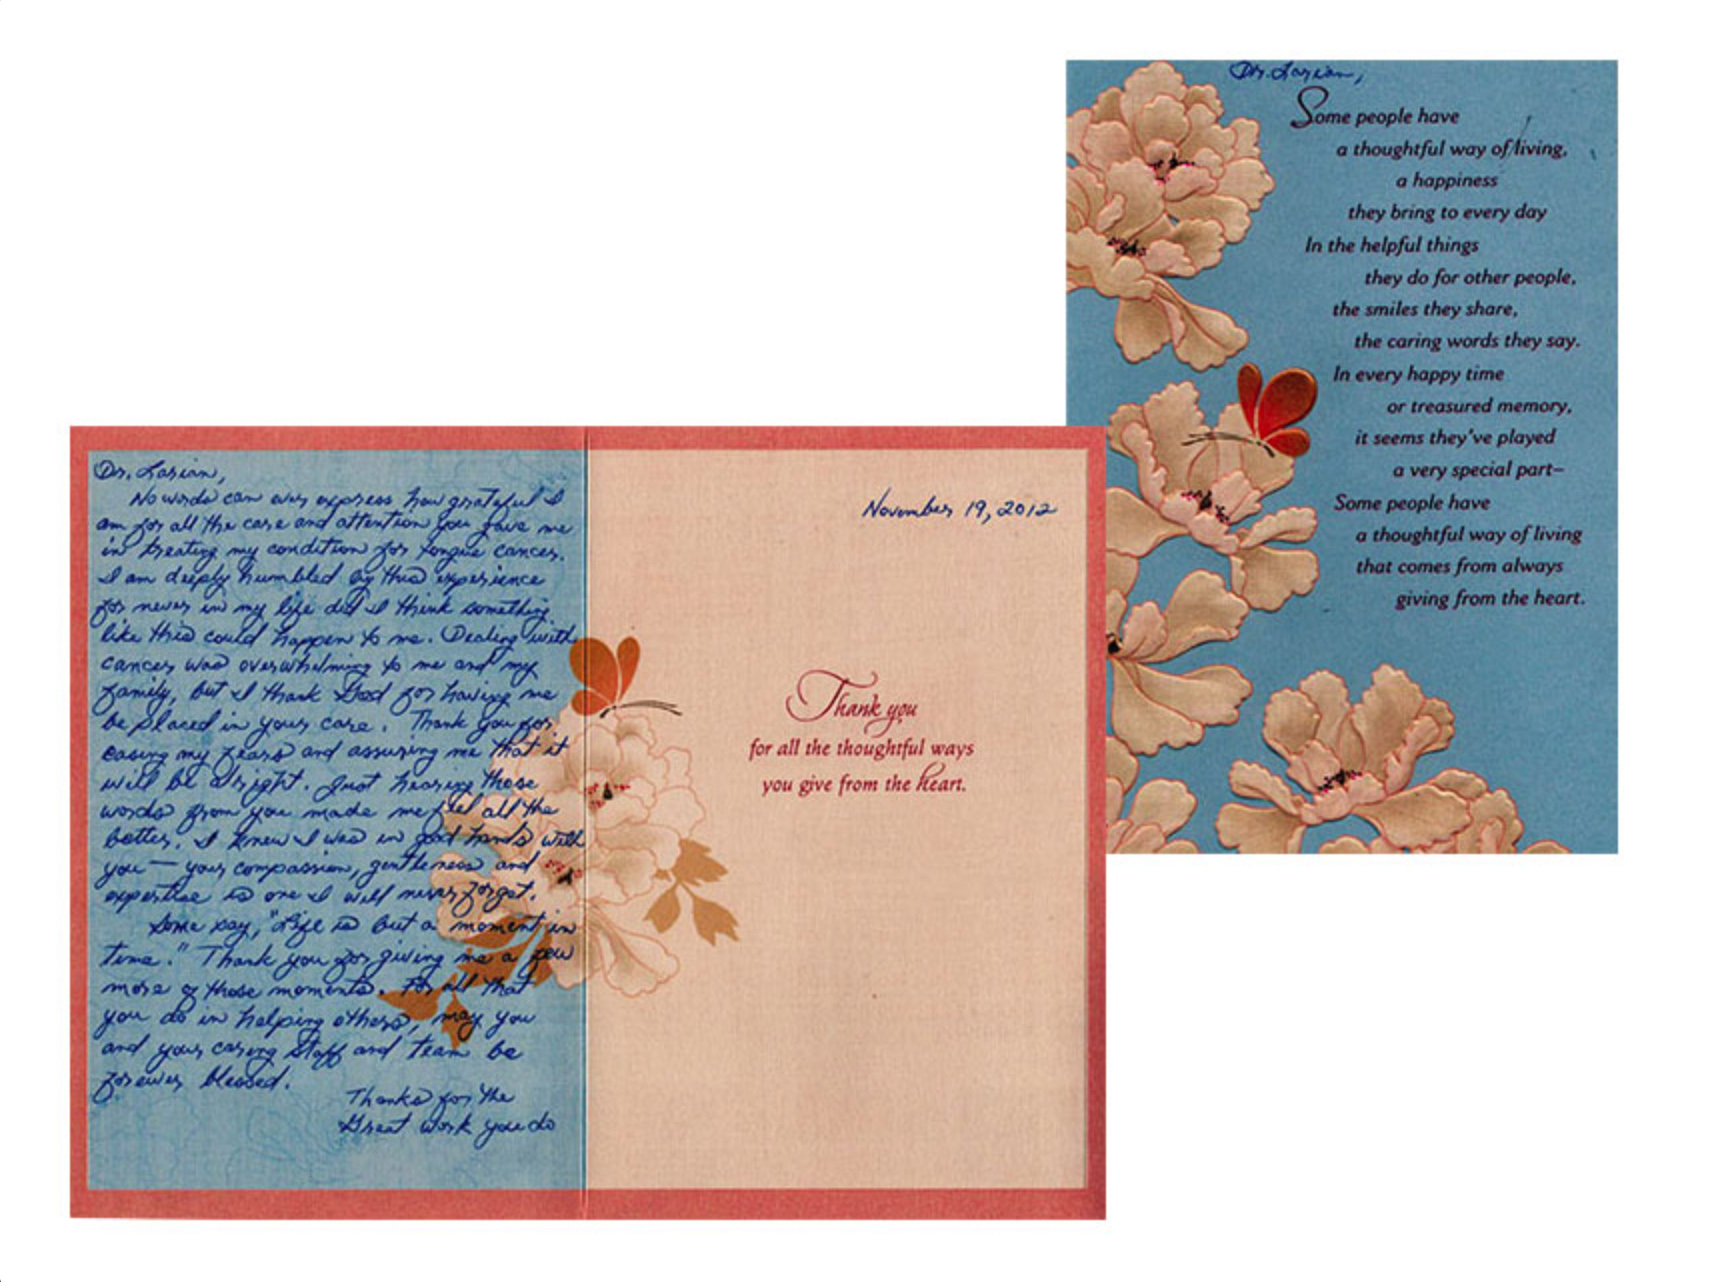 Dr. Larian,
Some people have
a thoughtful way of living,
a happiness
they bring to every day
In the helpful things
they do for other people,
the smiles they share,
the caring words they say.
In every happy time
or treasured memory,
it seems they've played
a very special part–
Some people have
a thoughtful way of living
that comes from always
giving from the heart.
Dr. Larian,
No words can ever express how grateful I
am for all the care and attention you gave me
in treating my condition for tongue cancer.
I am deeply humbled by this experience
for never in my life did I think something
like this could happen to me. Dealing with
cancer was overwhelming to me and my
family, but I thank God for having me
be placed in your care. Thank you for
easing my fears and assuring me that it
will be alright. Just hearing those
words from you made me feel all the
better. I knew I was in good hands with
you — your compassion, gentleness and
expertise is one I will never forget.
Some say, "Life is but a moment in
time." Thank you for giving me a few
more of those moments. For all that
you do in helping others, may you
and your caring staff and team be
forever blessed.
Thanks for the
Great work you do
November 19, 2012
Thank you
for all the thoughtful ways
you give from the heart.